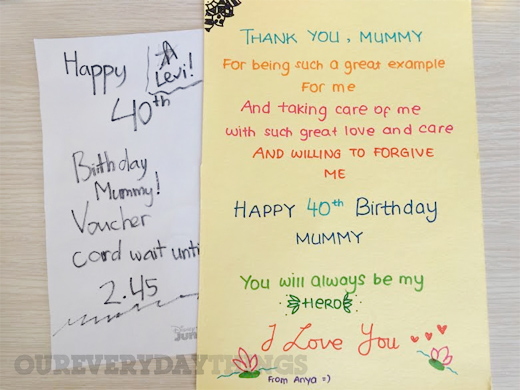 Happy
Levi!
40th
Birthday
Mummy!
Voucher
cord wait unti
2.45
THANK YOU, MUMMY
For being such a great example
For me
And taking care of me
with such great love and care
AND WILLING TO FORGIVE
ME
HAPPY 40th Birthday
MUMMY
You will always be my
HERO
I Love You
From Anya =)
OUREVERYDAYTHINGS